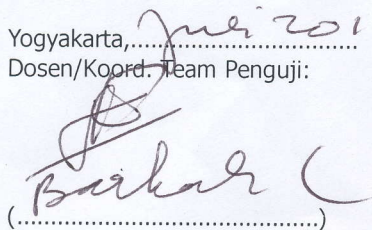 Yogyakarta, Juli 201
Dosen/Koord. Team Penguji:
(........................................)